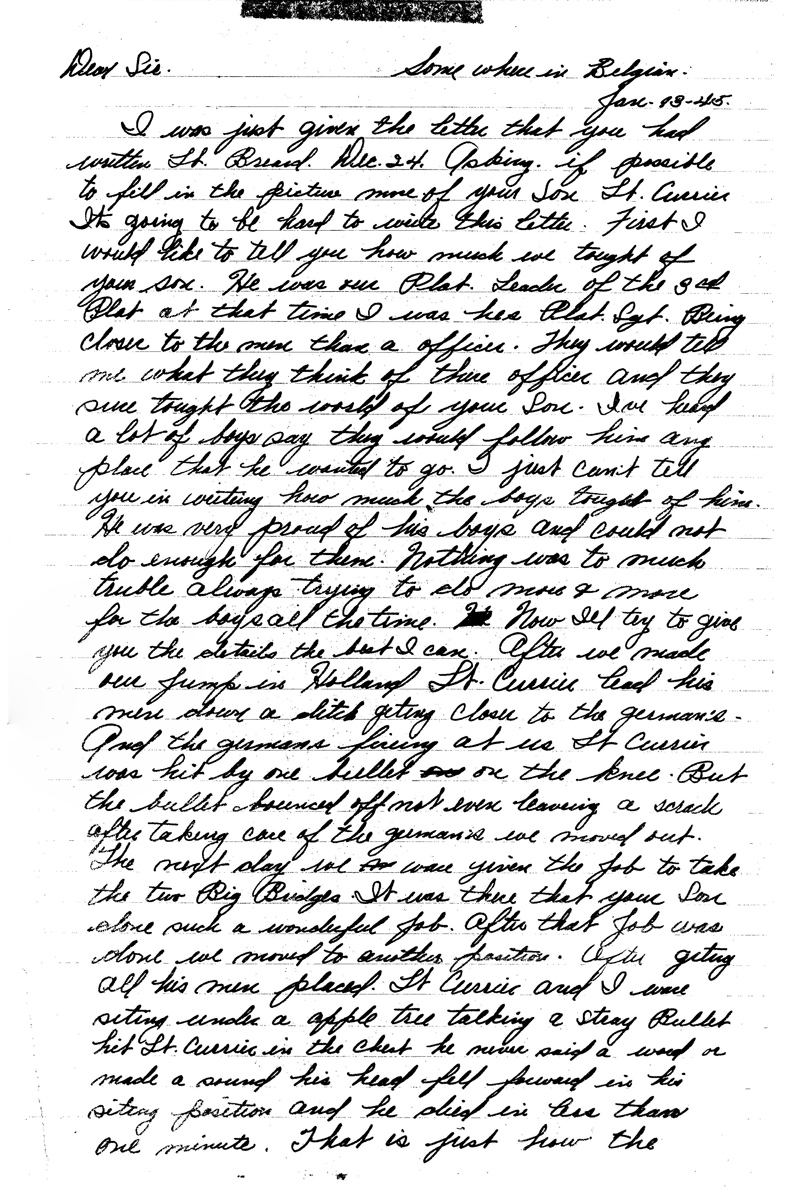 Dear Sir. Some where in Belgian.
Jan-13-45.
I was just given the letter that you had
written Lt. Breard. Dec. 24. Asking. if possible
to fill in the picture more of your Son Lt. Currier
It's going to be hard to write this letter. First I
would like to tell you how much we tought of
your son. He was our Plat. Leader of the 3rd
Plat at that time I was hes Plat. Sgt. Being
closer to the men than a officer. They would tell
me what they think of there officer and they
sure tought the world of your Son. I've heard
a lot of boys say they would follow him any
place that he wanted to go. I just can't tell
you in writing how much the boys tought of him.
He was very proud of his boys and could not
do enough for them. Nothing was to much
truble always trying to do more & more
for the boys all the time. Now I'll try to give
you the details the best I can. After we made
our jump in Holland Lt. Currier lead his
men down a ditch geting closer to the german's-
And the germans fireing at us Lt Currier
was hit by one bullet on the knee. But
the bullet bounced off not even leaving a scrach
after taking care of the german's we moved out.
The next day we ware given the job to take
the two Big Bridges It was there that your Son
done such a wonderful job. After that job was
done we moved to another position. After geting
all his men placed. Lt Currier and I ware
siting under a apple tree talking a Stray Bullet
hit Lt. Currier in the chest he never said a word or
made a sound his head fell forward in his
siting position and he died in less than
one minute. That is just how the